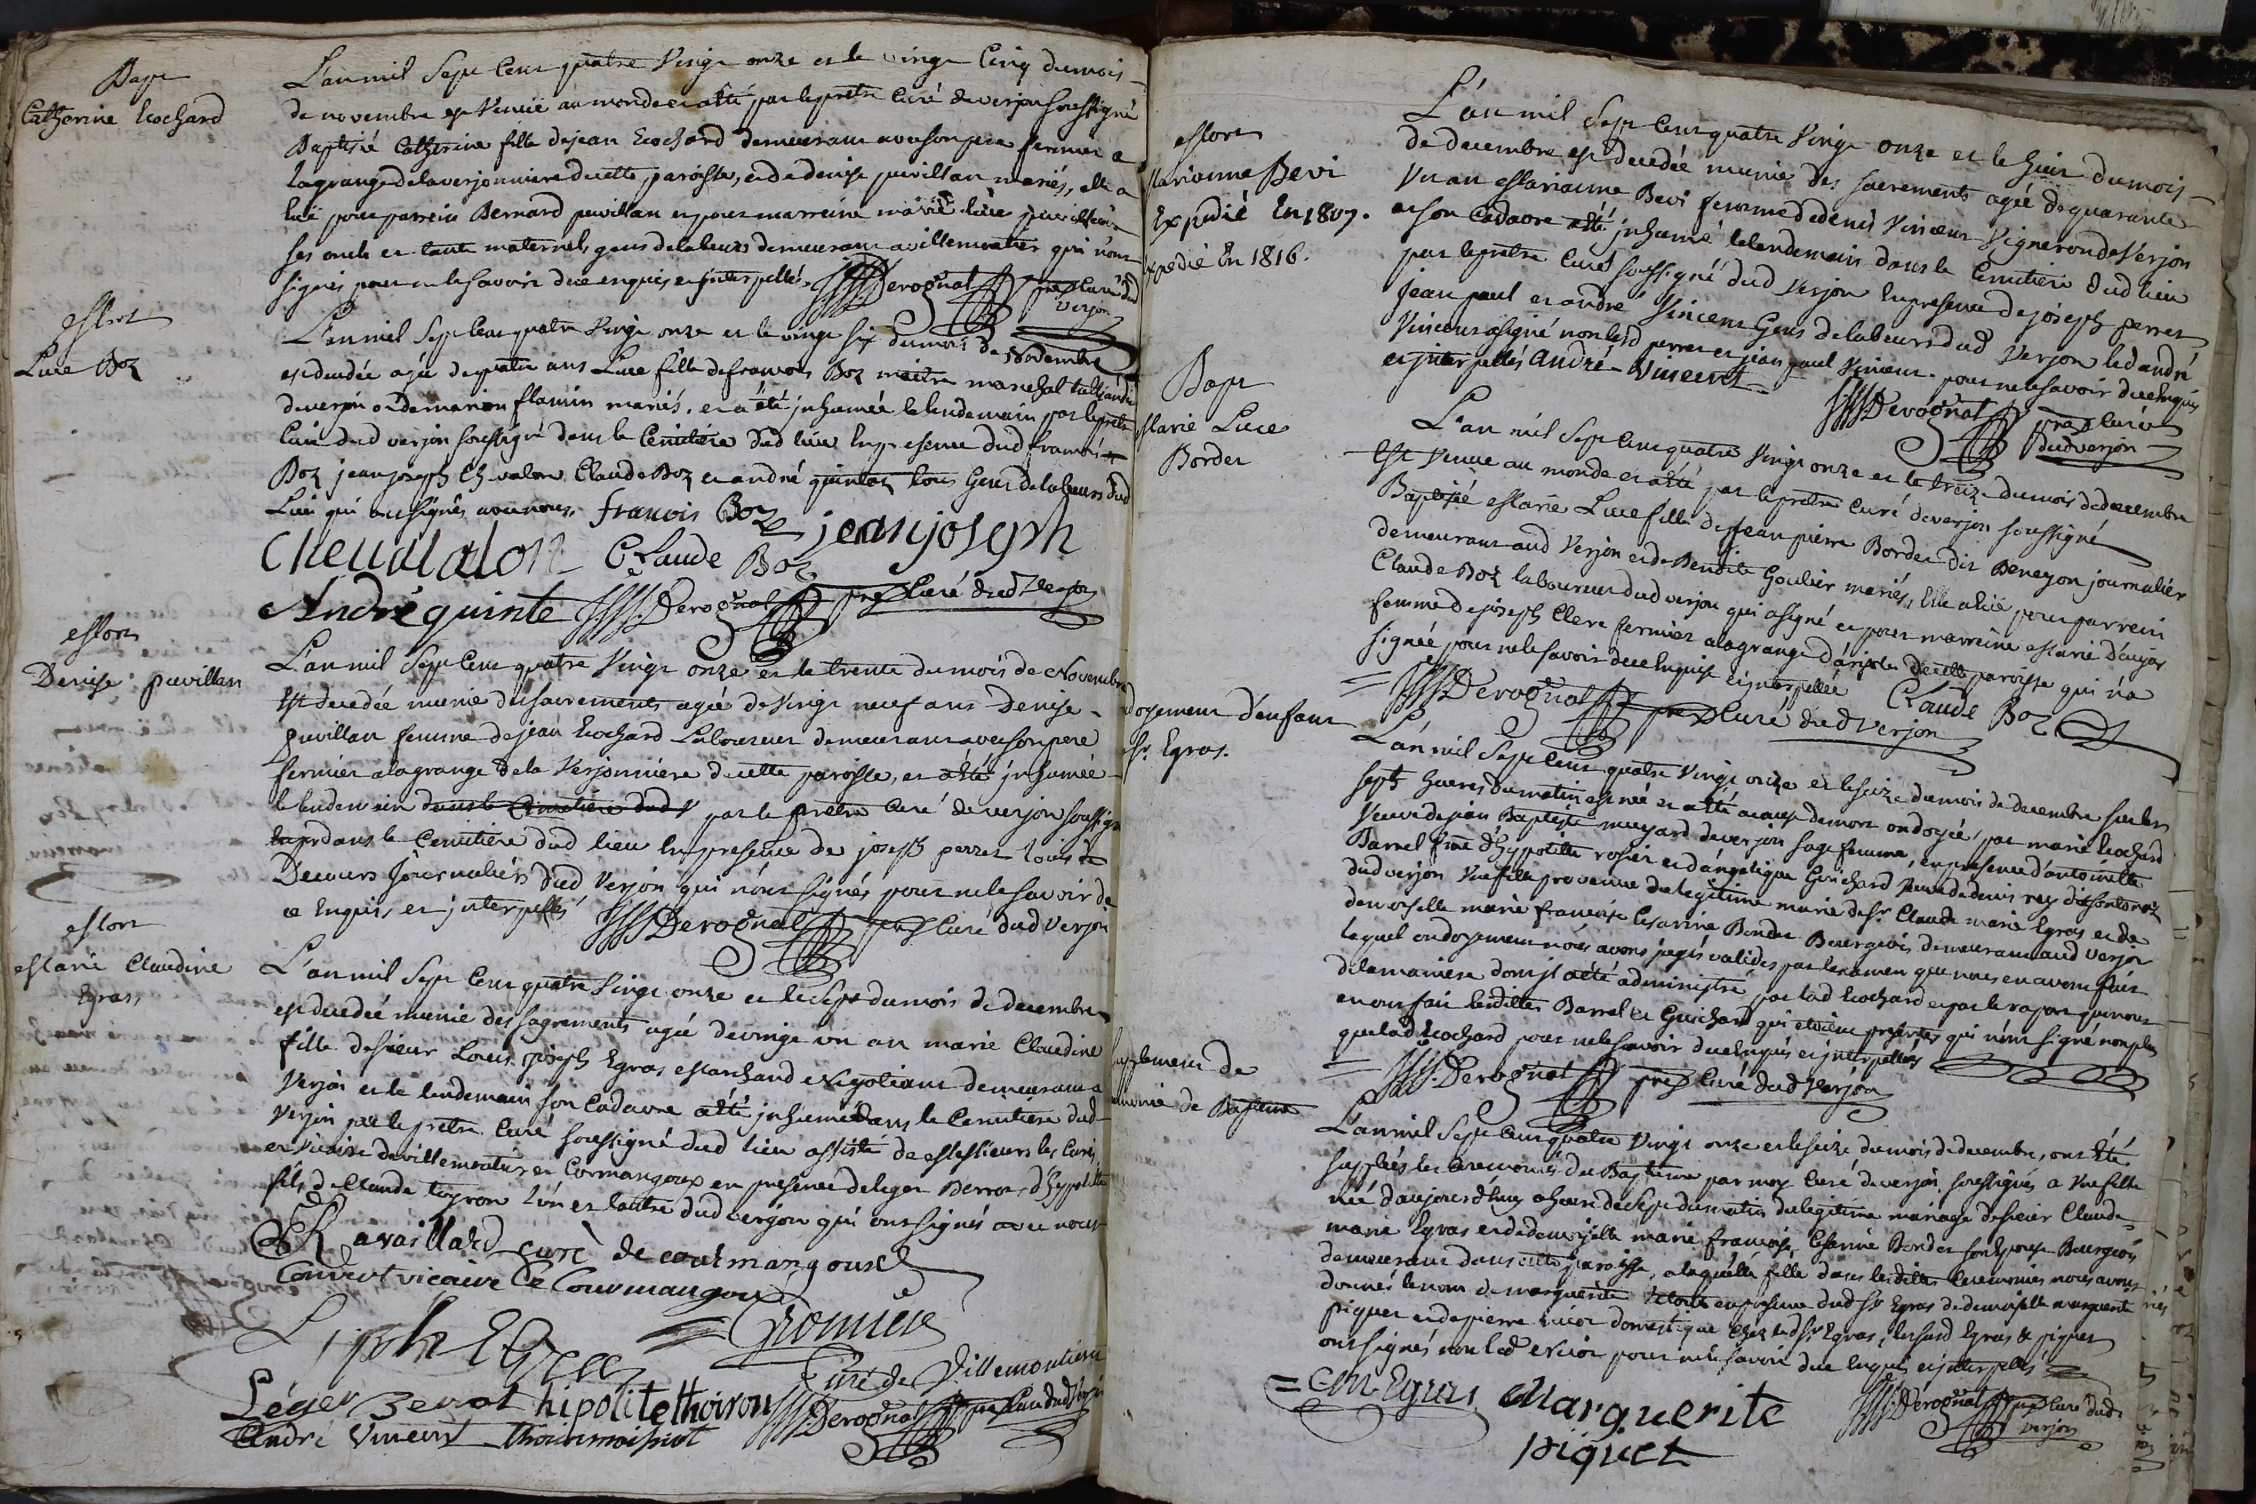 Bapt
Catherine Cochard
L'an mil Sept Cent quatre Vingt onze et le vingt Cinq du mois
de novembre est Venuë au monde et a été par le prêtre Curé de verjon soussigné
Baptisée Catherine fille de jean Cochard demeurant avec son pere fermier a
la grange de la verjonniere de cette paroisse, et de denise puvillan mariés, elle a
euë pour parrein Bernard puvillan et pour marreine marie
ses oncle et tante maternels gens de labeurs demeurant a villemoutier qui n'ont
signés pour ne le savoir de ce enquis et jnterpellés. Derognat pre Curé dud
Verjon
Mort
Luce Boz
L'an mil Sept Cent quatre Vingt onze et le vingt six du mois de Novembre
est decedée agée de quatre ans Luce fille de francois Boz maitre marechal
de verjon et de marion flamin mariés, et a été jnhumée le lendemain par le prêtre
Curé dud verjon soussigné dans le Cemitiere dud lieu En presence dud francois
Boz jean joseph Chevalon Claude Boz et andré quintoz tous Gens de labeurs dud
Lieu qui ont signés avec nous. francois Boz jean joseph
Chevalalon Claude Boz
André quinte Derognat pre Curé dud Verjon
Mort
Denise puvillan
L'an mil Sept Cent quatre Vingt onze et le trente du mois de Novembre
Est decedée munie des sacrements agée de Vingt neuf ans Denise
puvillan femme de jean Cochard Laboureur demeurant avec son pere
fermier a la grange de la Verjonniere de cette paroisse, et a été jnhumée
le lendemain dans le Cimetiere dud V par le prêtre Curé de verjon soussigné
dans le Cemitiere dud lieu En presence de joseph perret louis
Decours Journaliers dud Verjon qui n'ont signés pour ne le savoir de
ce Enquis, et jnterpellés Derognat pre Curé dud Verjon
Mort
Marie Claudine
Egras
L'an mil Sept Cent quatre Vingt onze et le Sept du mois de decembre
est decedée munie des sagrements agée de vingt un an marie Claudine
fille de sieur Louis joseph Egras Marchand Negotiant demeurant a
Verjon et le lendemain son Cadavre a été jnhumé dans le Cemitiere dud
Verjon par le prêtre Curé soussigné dud lieu assisté de Messieurs les Curés
et Vicaire de villemoutier et Cormangoux en presence de leger Berrot, d'hyppolitte
fils de Claude toyron l'un et l'autre dud verjon qui ont signés avec nous
Ravaillard curé de courmangoux
Convert vicaire de Courmangoux
L joseph Egras
Curé de Villemoutier
Léger Berrot hipolite thoiron Derognat pre Curé dud Verjon
André Vincent
Mort
Marionne Bevi
Expedié En 1807.
Expedié En 1816.
L'an mil Sept Cent quatre Vingt onze et le huit du mois
de decembre est decedée munie des sacrements agée de quarante
Un an Marianne Bevi femme de denis Vincent Vigneron de Verjon
et son Cadavre a été jnhumé le lendemain dans le Cemitiere dud lieu
par le prêtre Curé soussigné dud Verjon En presence de joseph perret
jean paul et andré Vincent Gens de labeurs dud Verjon led andré
Vincent a signé non lesd perret et jean paul Vincent pour ne le savoir de ce Enquis
et jnterpellés André Vincent
Derognat pre Curé
dud verjon
Bapt
Marie Luce
Bordet
L'an mil Sept Cent quatre Vingt onze et le treize du mois de decembre
Est Venue au monde et a été par le prêtre Curé de verjon soussigné
Baptisée Marie Luce fille de jean pierre Bordet dit Beneyon journalier
demeurant aud Verjon et de Benoite Goulier mariés, Elle a euë pour parrein
Claude Boz laboureur dud verjon qui a signé et pour marreine Marie daujat
femme de joseph Clerc fermier a la grange d'aripoles de cette paroisse qui n'a
signée pour ne le savoir de ce Enquise et jnterpellée Claude Boz
Derognat pre Curé dud Verjon
ondoyement d'enfant
Sr. Egras.
L'an mil Sept Cent quatre Vingt onze et le seize du mois de decembre sur les
sept heures du matin est née et a été a cause de mort ondoyée, par marie Cochard
Veuve de jean Baptiste muyard de verjon sage femme, en presence d'antoinette
Barrel fme d'hyppolitte rosier et d'angelique Guichard Veuve de denis rey
dud verjon Une fille provenue du legitime mariage de Sr. Claude marie Egras et de
demoiselle marie francoise Cesarine Bordet Bourgeois demeurant aud Verjon
lequel ondoyement nous avons jugés valides par l'examen que nous en avons fait
de la maniere dont jl a été administré par lad Cochard et par le raport que nous
en ont fait lesdittes Barrel et Guichard qui etoient presentes qui n'ont signé non plus
que lad Cochard pour ne le savoir de ce Enquis et jnterpellées
Derognat pre Curé dud Verjon
Supplement de
ceremonie de Bapteme
L'an mil Sept Cent quatre Vingt onze et le seize du mois de decembre, ont été
supplées les Ceremonies du Bapteme par moy Curé de verjon soussignés a Une fille
née d'aujourd'huy a heure de Sept du matin du legitime mariage de sieur Claude
marie Egras et de demoiselle marie francoise Cesarine Bordet son Epouse Bourgeois
demeurant dans cette paroisse, a laquelle fille dans lesdittes Ceremonies nous avons
donnés le nom de marguerite en presence dud Sr Egras de demoiselle marguerite
piquet et de pierre domestique Chez led Sr Egras, lesdits Egras & piquet
ont signés non led pour ne le savoir de ce Enquis et jnterpellés
Cm Egras Marguerite
piquet
Derognat pre Curé dud
verjon